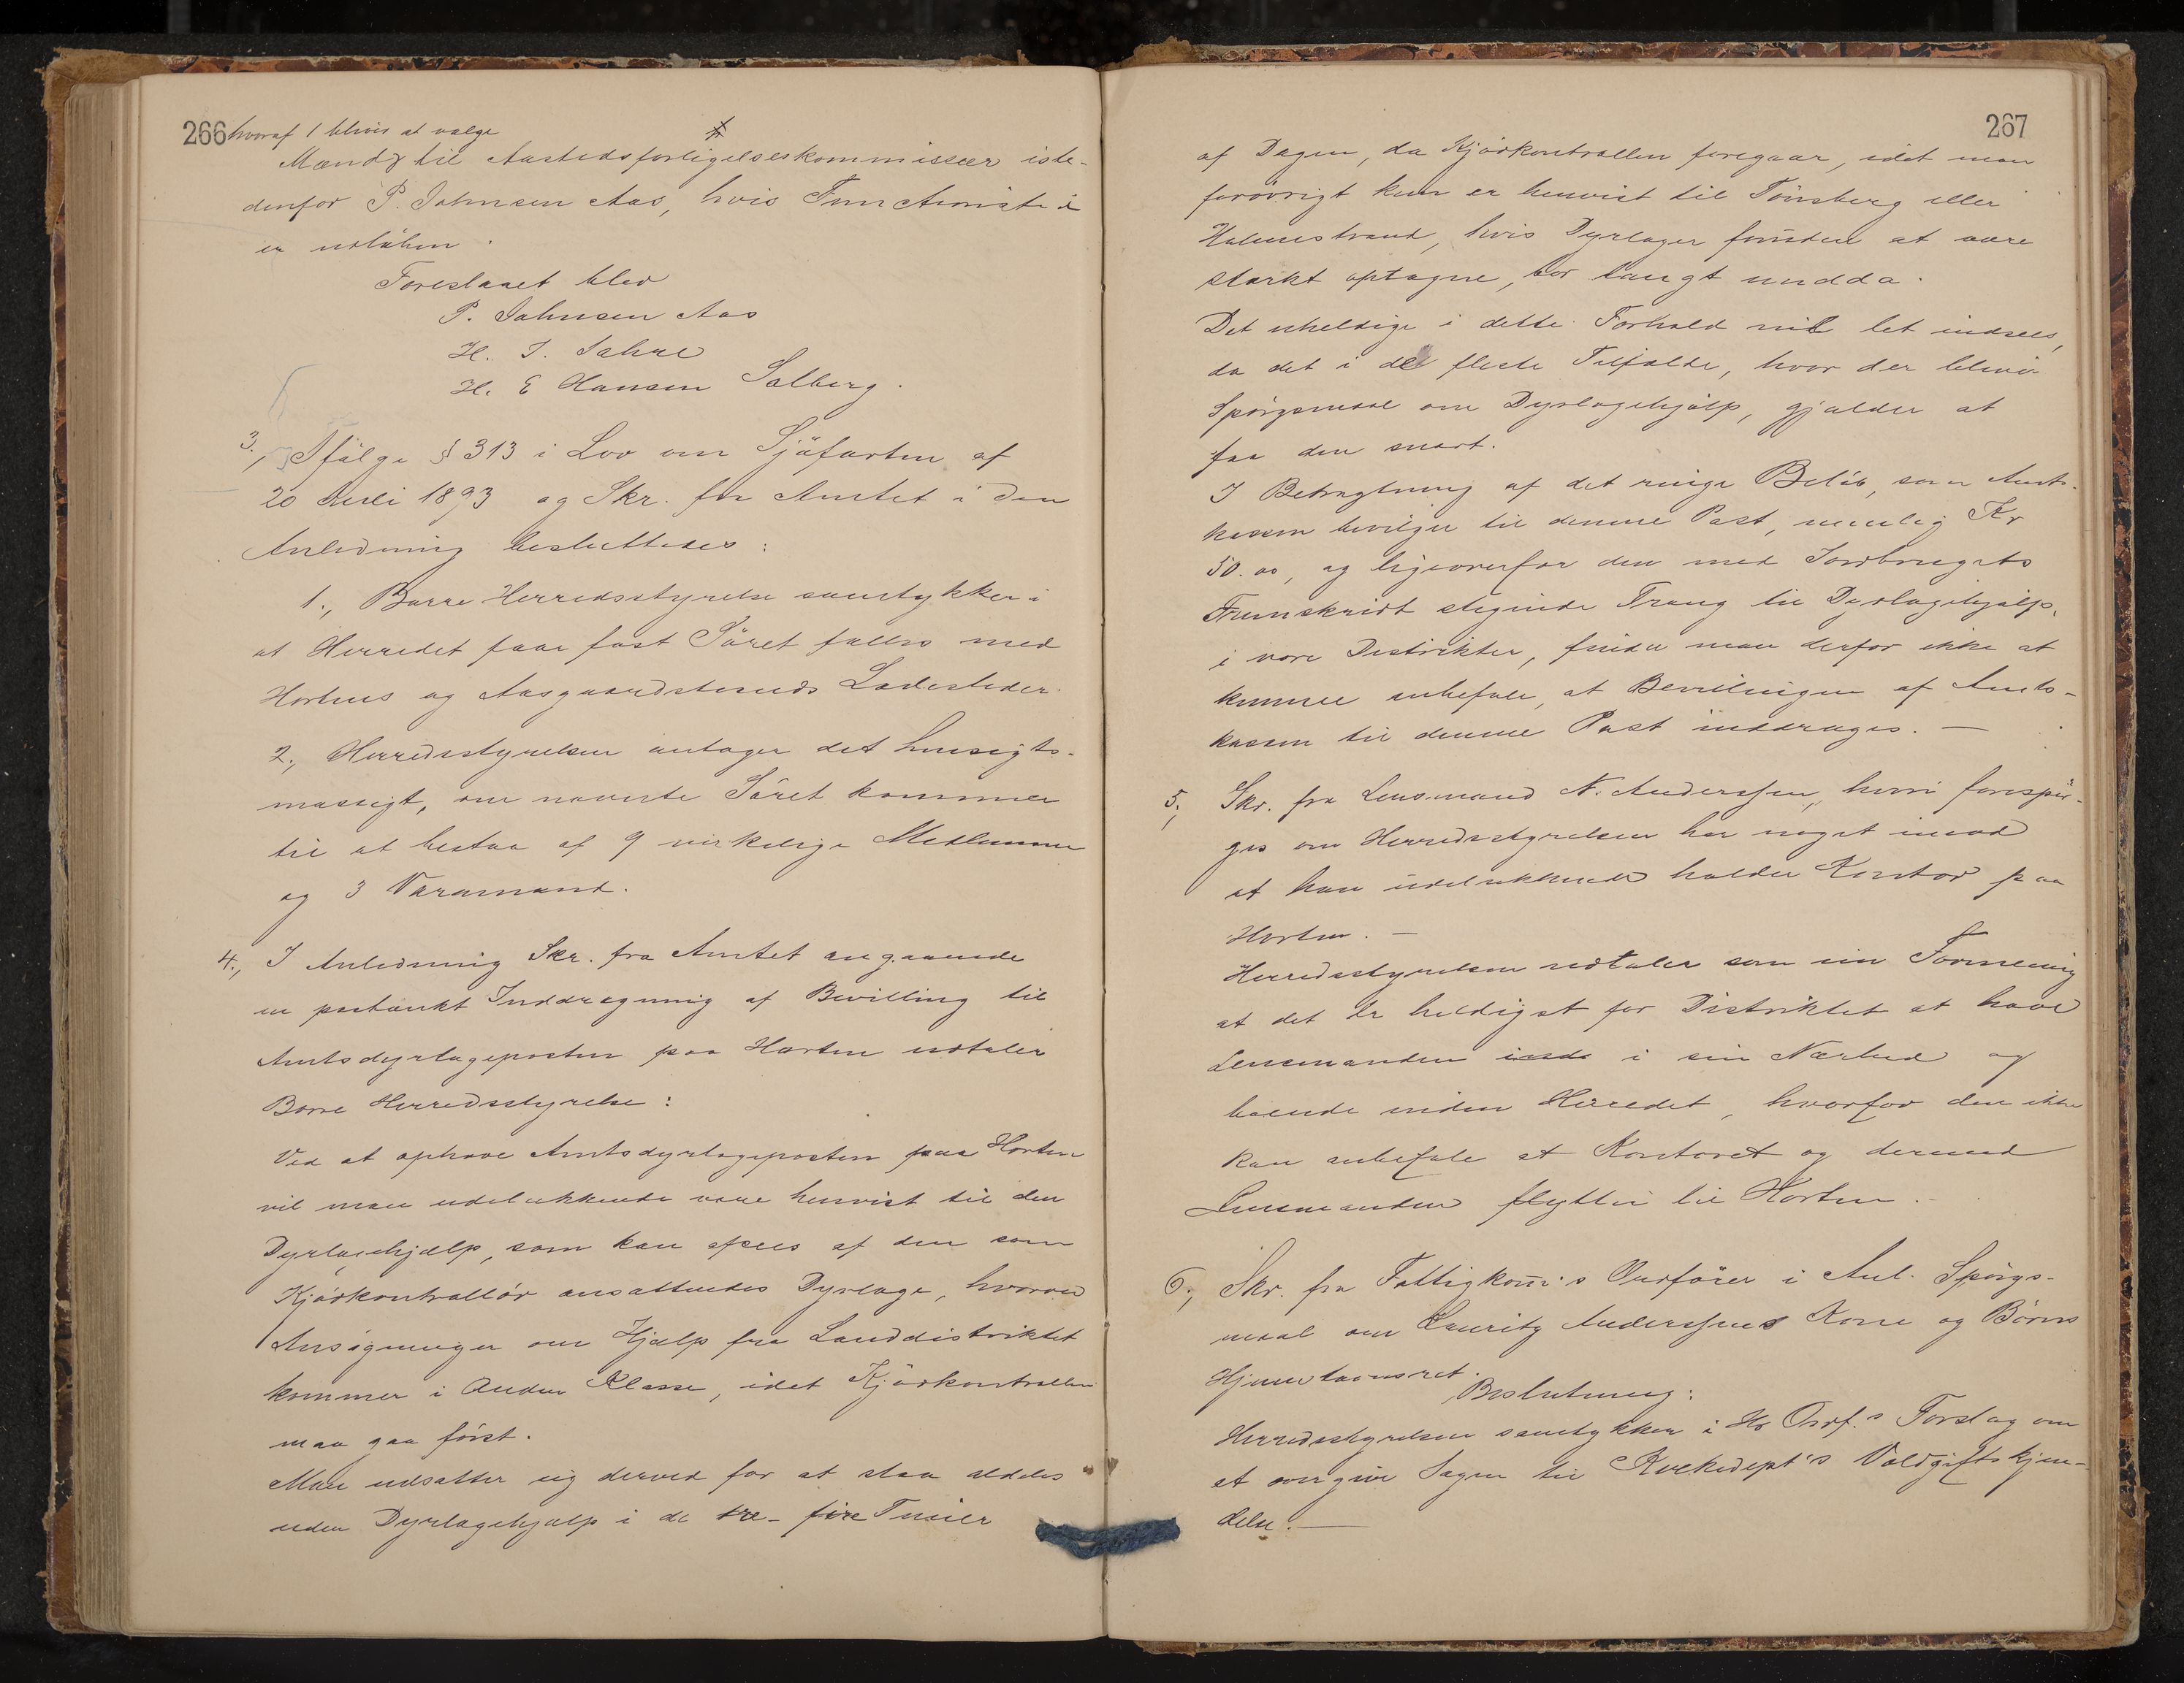 266 hvoraf 1 blives at vælge
Mænd til Aastedsforligelseskommissær iste-
denfor P. Johnsen Aas, hvis Functionstid
er udløben.
Foreslaaet blev
P. Johnsen Aas
H. J. Sahre
H. E Hansen Solberg.
3., Ifølge § 313 i Lov om Sjøfarten af
20 Juli 1893 og Skr. fra Amtet i den
Anledning besluttedes:
1., Borre Herredsstyrelse samtykker i
at Herredet faar fast Søret fælles med
Hortens og Aasgaardstrands Ladesteder.
2., Herredsstyrelsen antager det hensigts-
mæssigt, om nævnte Søret kommer
til at bestaa af 9 virkelige Medlemmer
og 3 Varamænd.
4., I Anledning Skr. fra Amtet angaaende
en paatænkt Inddragning af Bevilling til
Amtsdyrlægeposten paa Horten udtaler
Borre Herredsstyrelse:
Ved at ophæve Amtsdyrlægeposten paa Horten
vil man udelukkende være henvist til den
Dyrlægehjælp, som kan afsees af den som
Kjødkontrollør ansættendes Dyrlæge, hvorved
Ansøgninger om Hjælp fra Landdistriktet
kommer i anden Klasse, idet Kjødkontrollen
maa gaa først.
Man udsætter sig derved for at staa aldeles
uden Dyrlægehjælp i de tre-fire Timer
267
af Dagen, da Kjødkontrollen foregaar, idet man
forøvrigt kun er henvist til Tønsberg eller
Holmestrand, hvis Dyrlæger foruden at være
stærkt optagne, bor langt undda.
Det uheldige i dette Forhold vil let indsees,
da det i de fleste Tilfælde, hvor der bliver
Spørgsmaal om Dyrlægehjælp, gjælder at
faa den snart.
I Betragtning af det ringe Beløb, som Amts-
kassen bevilger til denne Post, nemlig Kr
50.00, og ligeoverfor den med Jordbrugets
Fremskridt stegende Trang til Dyrlægehjælp,
i vore Distrikter, finder man derfor ikke at
kunne anbefale, at Bevillingen af Amts-
kassen til denne Post inddrages. —
5., Skr. fra Lensmand N. Anderssen, hvori forespør-
ges om Herredsstyrelsen har noget imod
at han udelukkende holder Kontor paa
Horten. —
Herredsstyrelsen udtaler som sin Formening
at det er heldigst for Distriktet at have
Lensmanden i sin Nærhed og
boende inden Herredet, hvorfor den ikke
kan anbefale at Kontoret og dermed
Lensmanden flytter til Horten. —
6., Skr. fra Fattigkom:s Ordfører i Anl. Spørgs-
maal om Lauritz Anderssens Kone og Børns
Hjemstavnsret.
Beslutning:
Herredsstyrelsen samtykker i Hr Ordf.s Forslag om
at overgive Sagen til Kirkedept's Voldgiftskjen-
delse. —